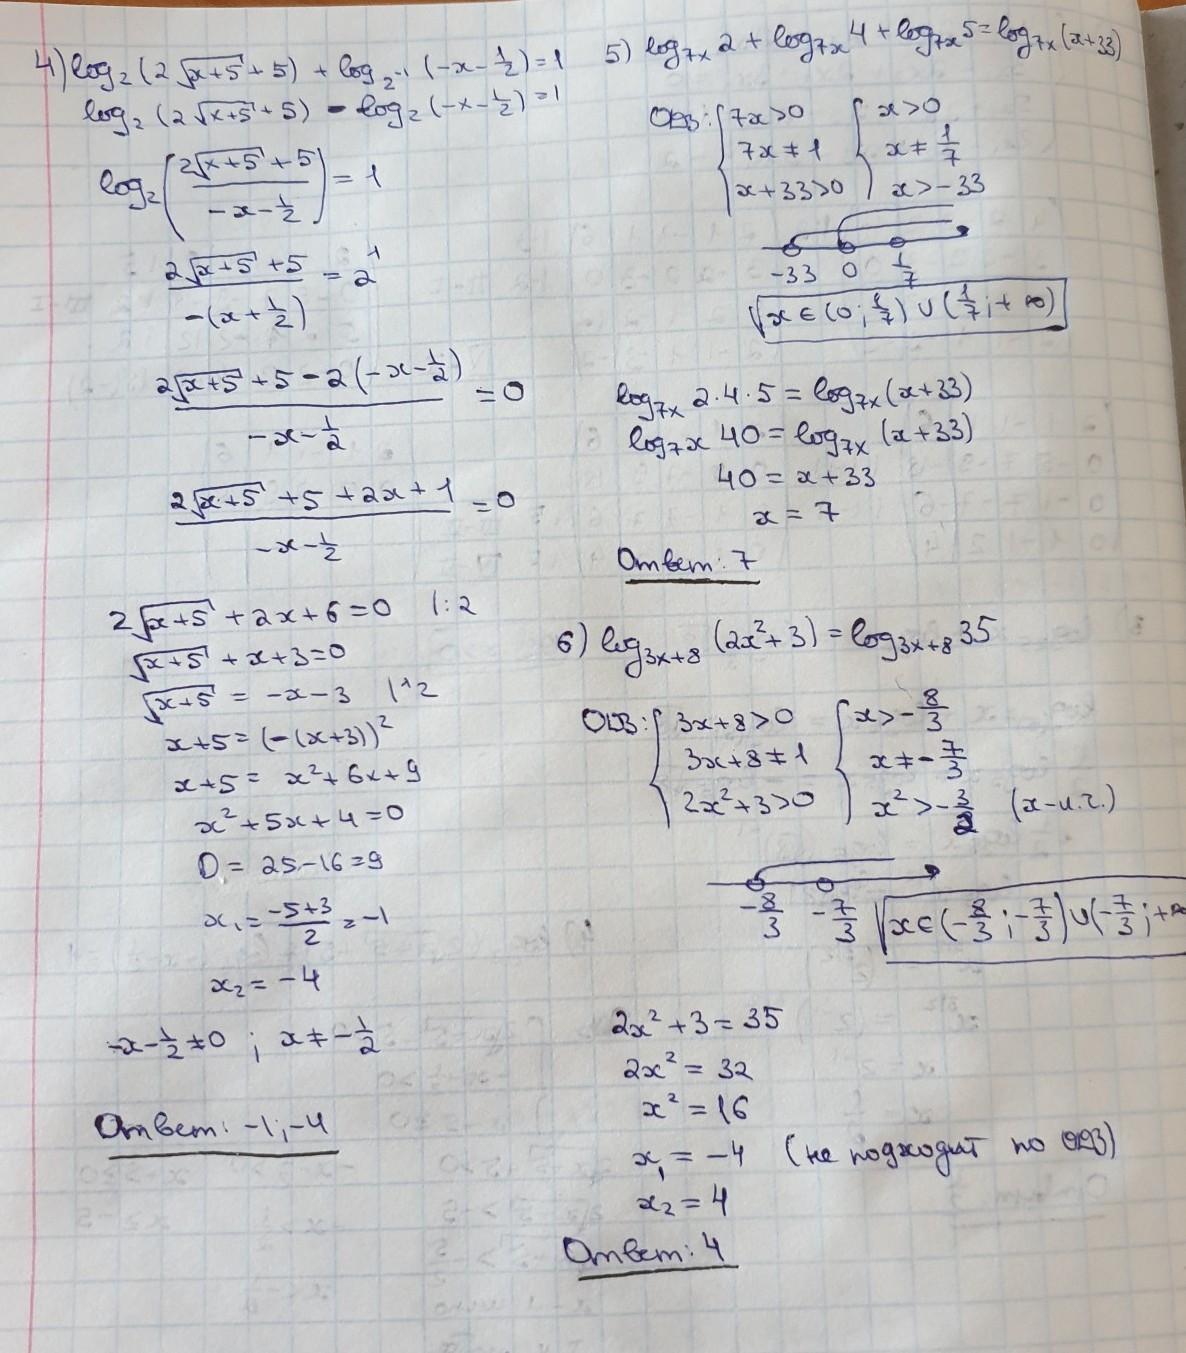 4) log₂(2√(x+5) + 5) + log₂₋₁(-x - 1/2) = 1
log₂(2√(x+5) + 5) - log₂(-x - 1/2) = 1
log₂((2√(x+5) + 5)/(-x - 1/2)) = 1
(2√(x+5) + 5)/(-(x + 1/2)) = 2¹
(2√(x+5) + 5 - 2(-x - 1/2))/(-x - 1/2) = 0
(2√(x+5) + 5 + 2x + 1)/(-x - 1/2) = 0
2√(x+5) + 2x + 6 = 0 |:2
√(x+5) + x + 3 = 0
√(x+5) = -x - 3 |^2
x + 5 = (-(x+3))²
x + 5 = x² + 6x + 9
x² + 5x + 4 = 0
D = 25 - 16 = 9
x₁ = (-5+3)/2 = -1
x₂ = -4
-x - 1/2 ≠ 0 ; x ≠ -1/2
Ответ: -1; -4
5) log₇ₓ 2 + log₇ₓ 4 + log₇ₓ 5 = log₇ₓ (x+33)
ОДЗ: { 7x > 0 { x > 0
7x ≠ 1 x ≠ 1/7
x + 33 > 0 x > -33
-33 0 1/7
x ∈ (0; 1/7) ∪ (1/7; +∞)
log₇ₓ 2·4·5 = log₇ₓ (x+33)
log₇ₓ 40 = log₇ₓ (x+33)
40 = x + 33
x = 7
Ответ: 7
6) log_{3x+8} (2x² + 3) = log_{3x+8} 35
ОДЗ: { 3x + 8 > 0 { x > -8/3
3x + 8 ≠ 1 x ≠ -7/3
2x² + 3 > 0 x² > -3/2 (x - л.ч.)
-8/3 -7/3
x ∈ (-8/3; -7/3) ∪ (-7/3; +∞
2x² + 3 = 35
2x² = 32
x² = 16
x₁ = -4 (не подходит по ОДЗ)
x₂ = 4
Ответ: 4